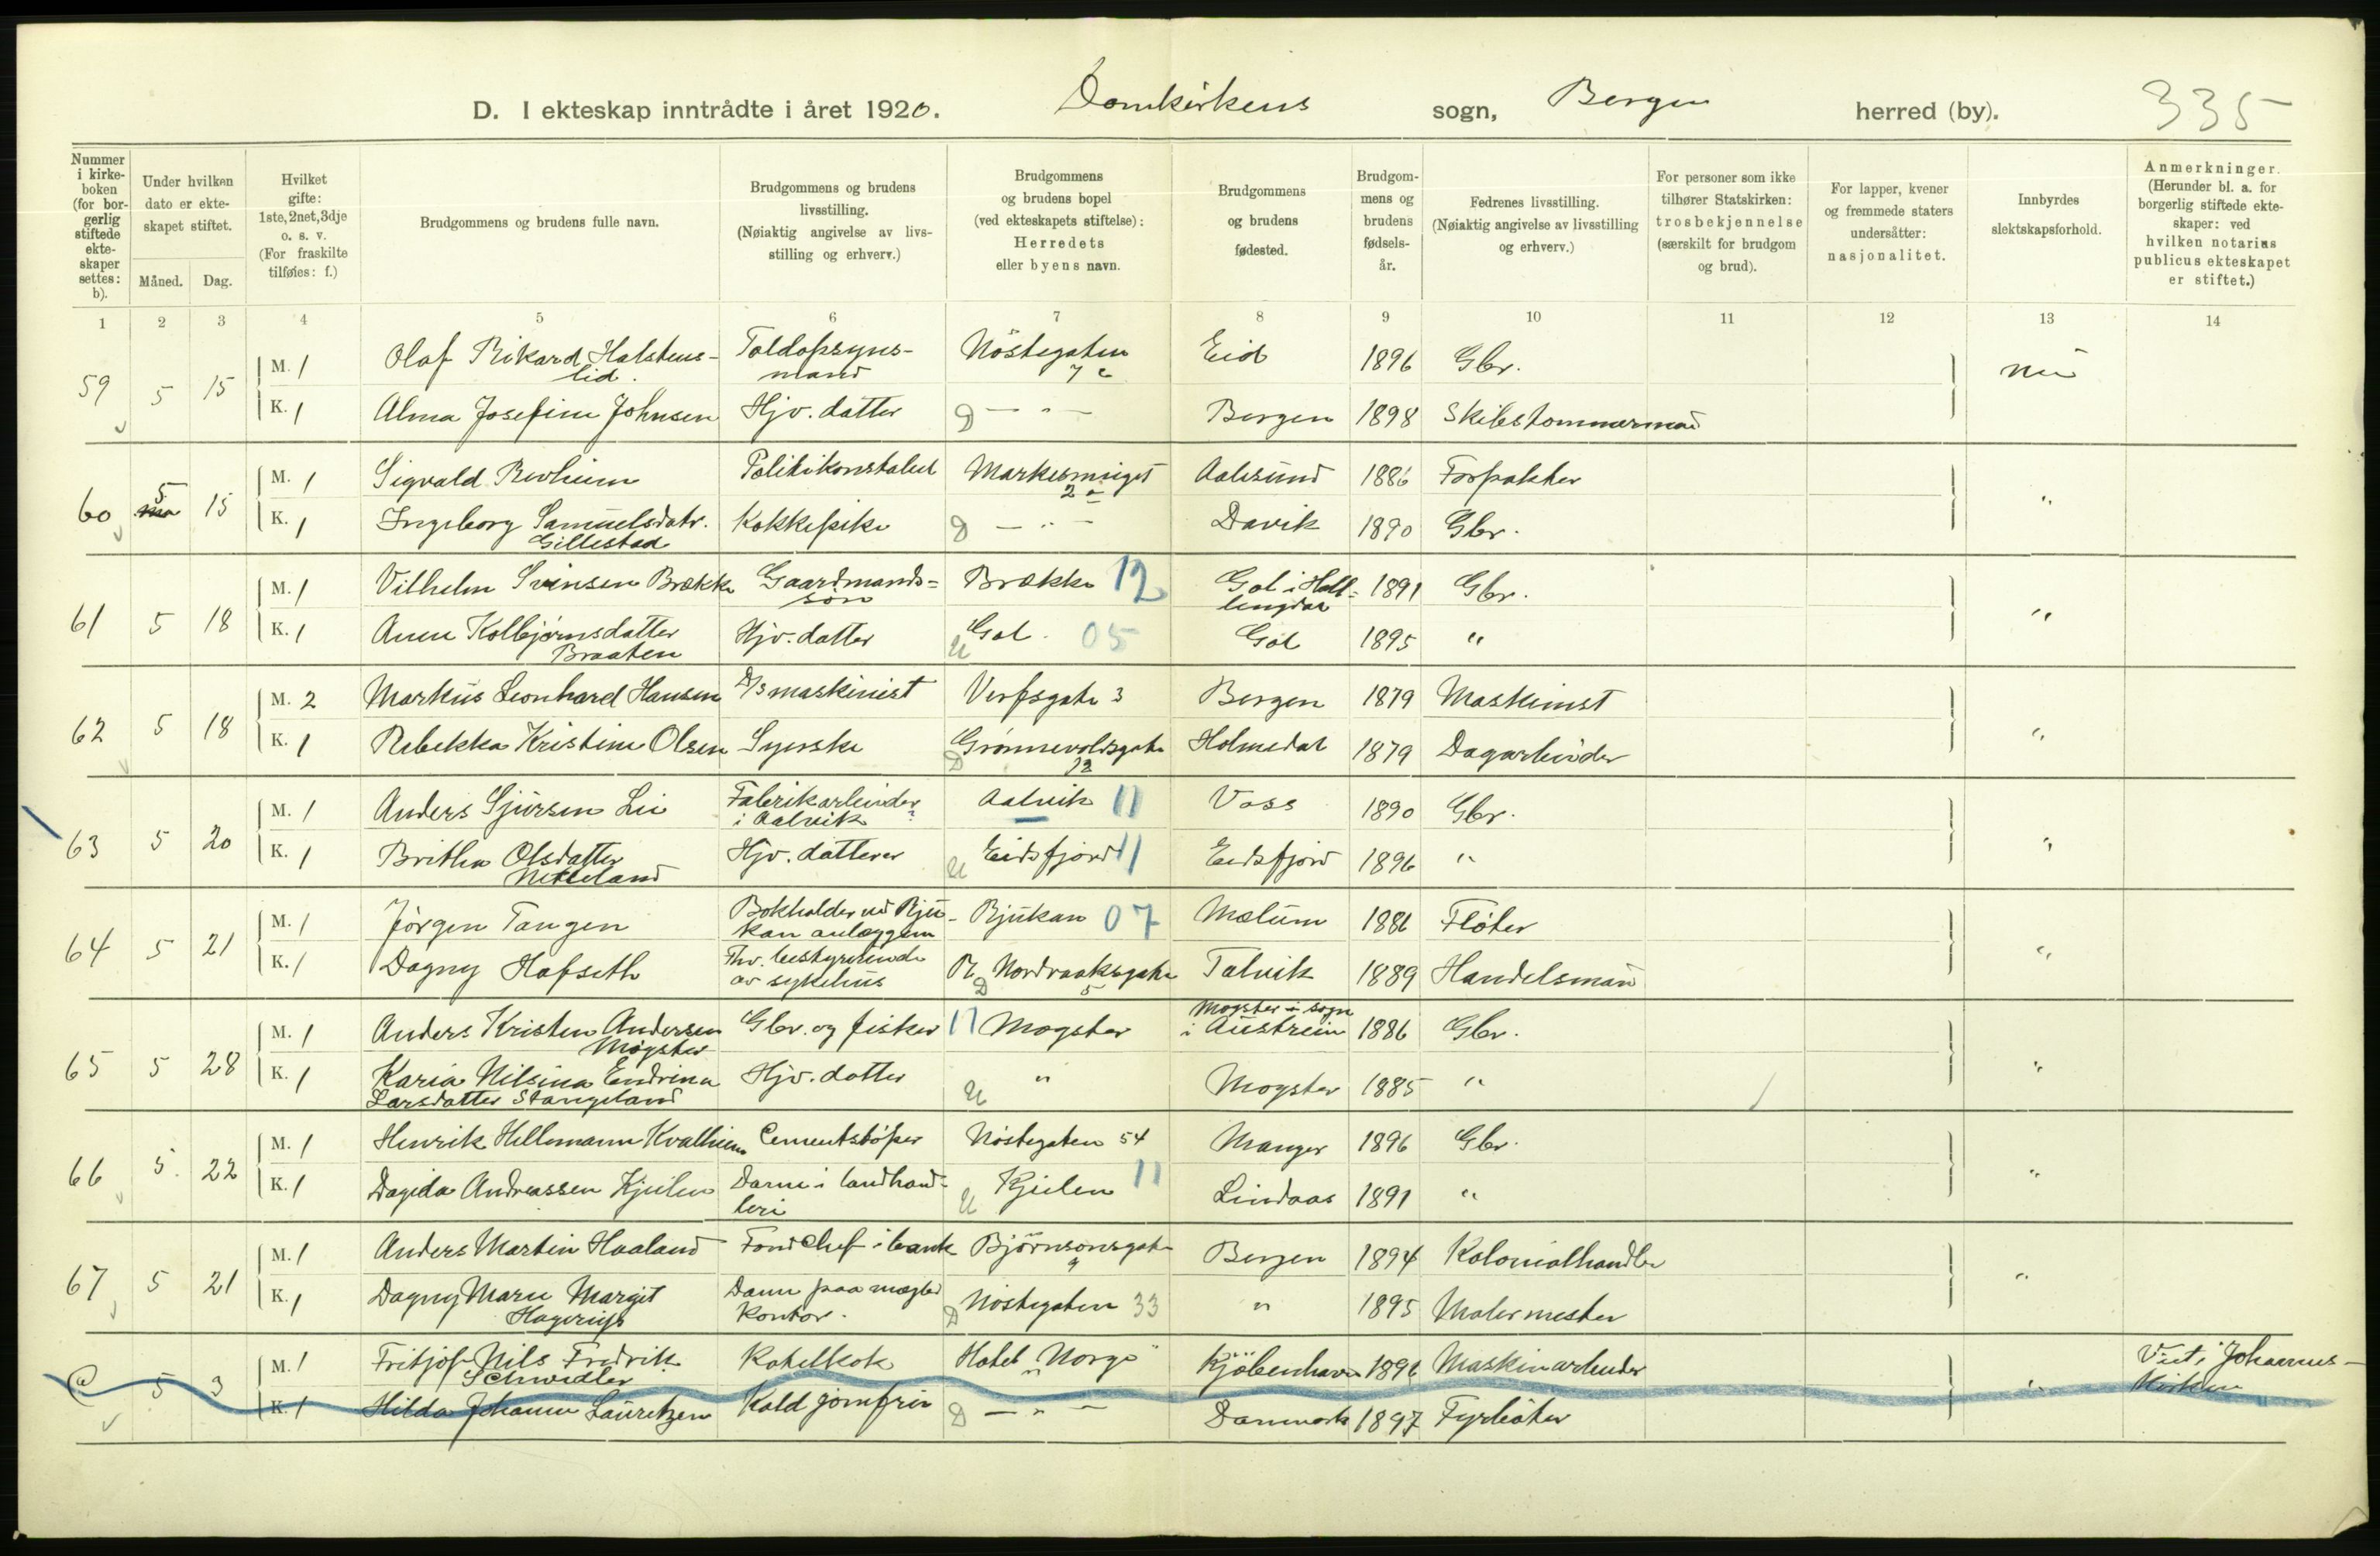 D. I ekteskap inntrådte i året 1920. Domkirkens sogn, Bergen herred (by). 335
Nummer i kirkeboken (for borgerlig stiftede ekteskaper settes: b).
Under hvilken dato er ekteskapet stiftet.
Måned. Dag.
Hvilket gifte: 1ste, 2net, 3dje o. s. v. (For fraskilte tilføies: f.)
Brudgommens og brudens fulle navn.
Brudgommens og brudens livsstilling. (Nøiaktig angivelse av livsstilling og erhverv.)
Brudgommens og brudens bopel (ved ekteskapets stiftelse): Herredets eller byens navn.
Brudgommens og brudens fødested.
Brudgommens og brudens fødselsår.
Fedrenes livsstilling. (Nøiaktig angivelse av livsstilling og erhverv.)
For personer som ikke tilhører Statskirken: trosbekjennelse (særskilt for brudgom og brud).
For lapper, kvener og fremmede staters undersåtter: nasjonalitet.
Innbyrdes slektskapsforhold.
Anmerkninger. (Herunder bl. a. for borgerlig stiftede ekteskaper: ved hvilken notarius publicus ekteskapet er stiftet.)
1 2 3 4 5 6 7 8 9 10 11 12 13 14
59 5 15 M. 1 Olaf Rikard Halstenslid. Toldopsynsmand Nöstegaten 7 c Eid 1896 Gbr. nei
K. 1 Alma Josefine Johnsen Hjv. datter D — " — Bergen 1898 Skibstømmermand
60 5 15 M. 1 Sigvald Revheim Politikonstabel Markesmuget 2 a Aalesund 1886 Forpakter "
K. 1 Ingeborg Samuelsdatr. Gillestad Kokkepike D — " — Davik 1890 Gbr.
61 5 18 M. 1 Vilhelm Svensen Brække Gaardmandssön Brække 12 Gol i Hallingdal 1891 Gbr. "
K. 1 Anne Kolbjörnsdatter Braaten Hjv. datter U Gol. 05 Gol 1895 "
62 5 18 M. 2 Markus Leonhard Hansen D/s maskinist Verfsgate 3 Bergen 1879 Maskinist "
K. 1 Rebekka Kristine Olsen Syerske D Grönnevoldsgate 12 Holmedal 1879 Dagarbeider
63 5 20 M. 1 Anders Sjursen Lii Fabrikarbeider i Aalvik Aalvik 11 Voss 1890 Gbr. "
K. 1 Britha Olsdatter Hjv. datterer U Eidsfjord 11 Eidsfjord 1896 "
64 5 21 M. 1 Jörgen Tangen Bokholder ved Rjukan anlæggene Rjukan 07 Mælum 1886 Flöter "
K. 1 Dagny Hafseth Fhv. bestyrerinde av sykehus R. Nordraaksgate 5 D Talvik 1889 Handelsmand
65 5 28 M. 1 Anders Kristen Andersen Møgster Gbr. og fisker 11 Mögster Mögster sogn i Austrheim 1886 Gbr. "
K. 1 Karia Nilsina Endrina Larsdatter Stangeland Hjv. datter U " Mögster 1885 "
66 5. 22 M. 1 Henrik Hillemann Kvalheim Cementstöper Nöstegaten 54 Manger 1896 Gbr. "
K. 1 Dagida Andreassen Kjulen Dame i landhandleri U Kjulen 11 Lindaas 1891 "
67 5 21 M. 1 Anders Martin Haaland Fondchef i bank Björnsonsgate 9 Bergen 1894 Kolonialhandler "
K. 1 Dagny Marie Margit Hagerup Dame paa mægler kontor. D Nöstegaten 33 " 1895 Malermester
a 5 3 M. 1 Fritjof Nils Fredrik Schwedler Hotelkok Hotel "Norge" Kjöbenhavn 1896 Maskinarbeider " Viet i Johannes-kirken
K. 1 Hilda Johanne Lauritzen Kold jomfru D — " — Danmark 1897 Fyrböter